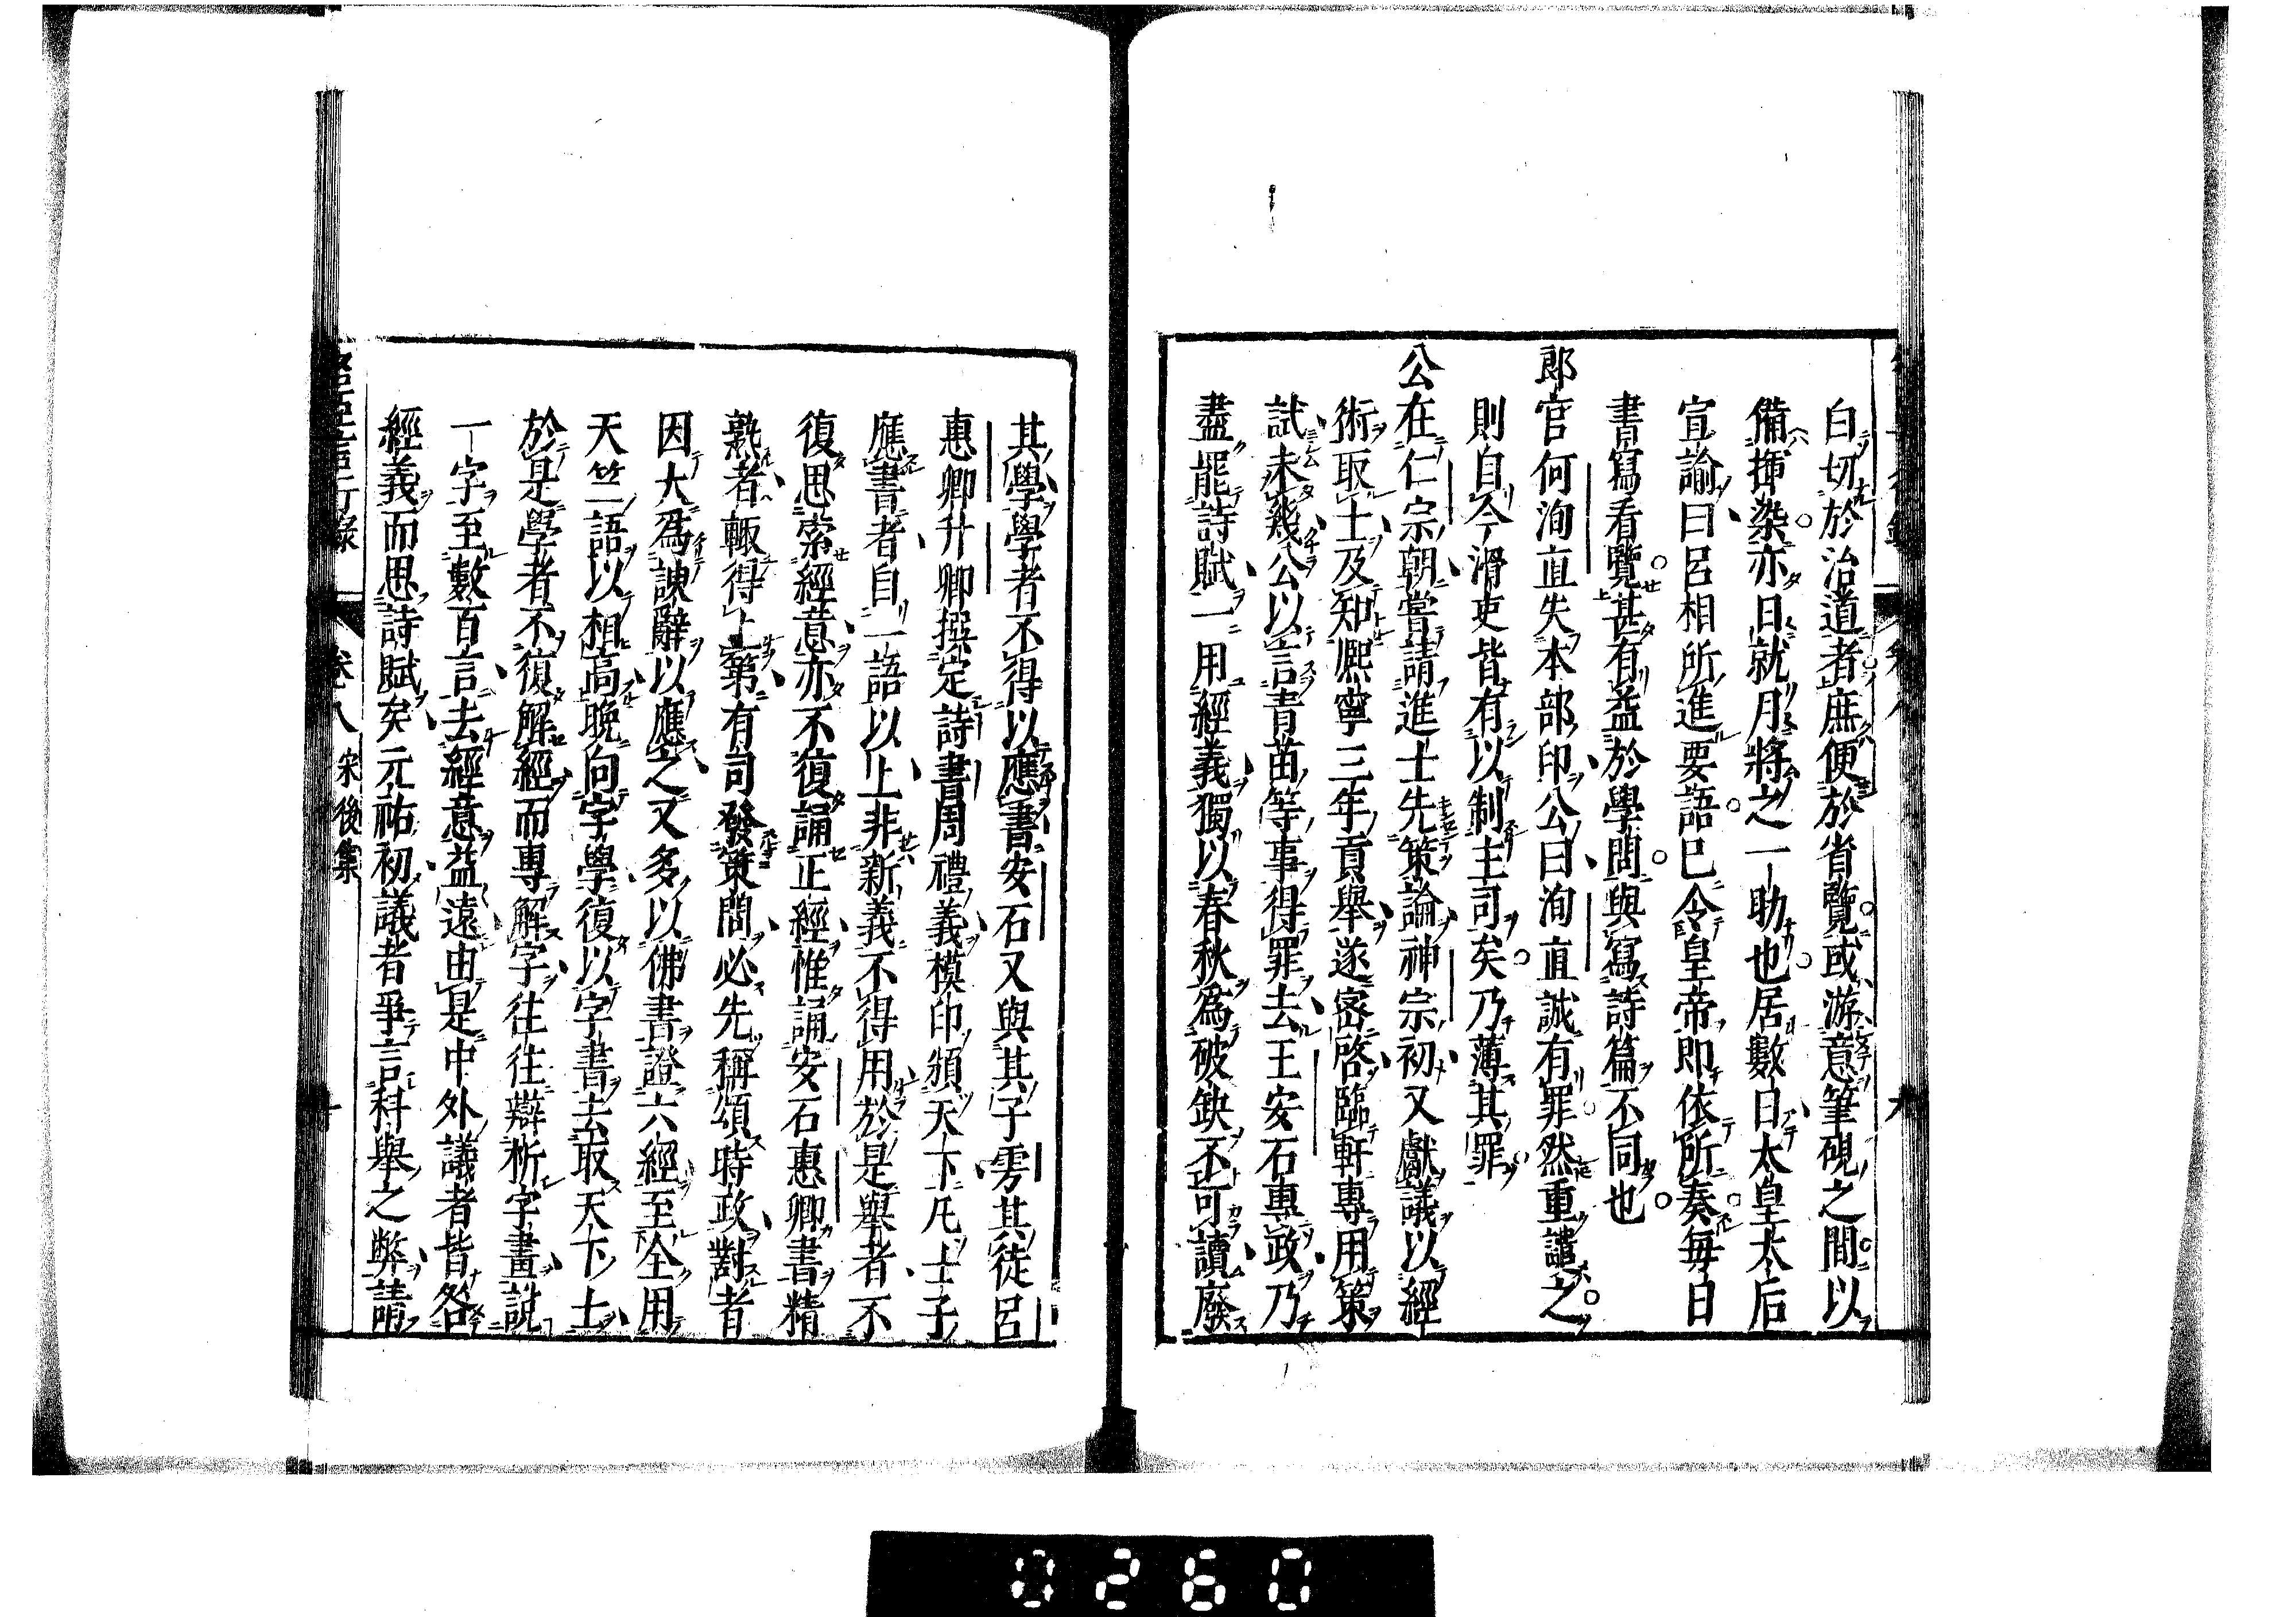 白切於治道者庶便於省覽或游意筆硯之間以
備揮染亦日就月將之一助也居數日太皇太后
宣諭曰呂相所進要語已令皇帝即依所奏毎日
書寫看覽甚有益於學問與寫詩篇不同也
郎官何洵直失本部印公曰洵直誠有罪然重譴之
則自今滑吏皆有以制主司矣乃薄其罪
公在仁宗朝嘗請進士先策論神宗初又獻議以經
術取士及知熈寧三年貢舉遂密啓臨軒專用策
試未幾公以言青苗等事得罪去王安石專政乃
盡罷詩賦一用經義獨以春秋為破缺不可讀廢
其學學者不得以應書安石又與其子雱其徒呂
惠卿升卿撰定詩書周禮義模印頒天下凡士子
應書者自一語以上非新義不得用於是舉者不
復思索經意亦不復誦正經惟誦安石惠卿書精
熟者輙得上第有司發策問必先稱頌時政對者
因大爲諛辭以應之又多以佛書證六經至全用
天竺語以相高晩向字學復以字書去取天下士
於是學者不復解經而專解字往往辯析字畫說
一字至數百言去經意益遠由是中外議者皆咎
經義而思詩賦矣元祐初議者爭言科舉之弊請
名臣言行錄 卷八 宋後集 十
0260